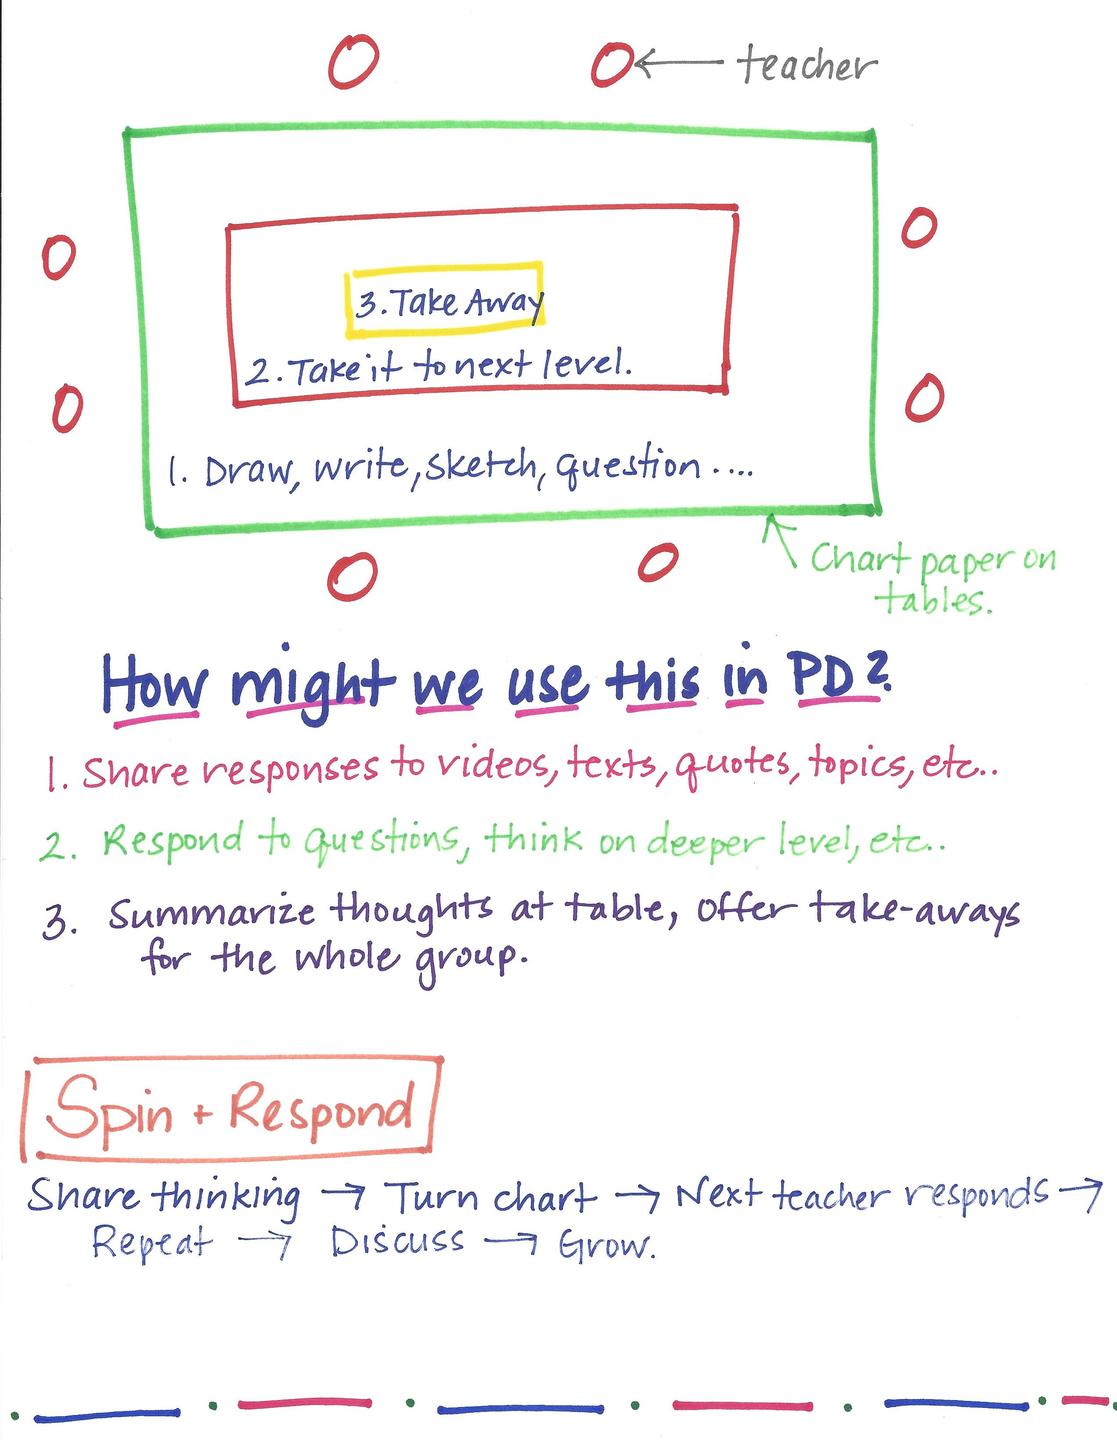 teacher
3. Take Away
2. Take it to next level.
1. Draw, write, sketch, question ....
Chart paper on
tables.
How might we use this in PD?
1. Share responses to videos, texts, quotes, topics, etc..
2. Respond to questions, think on deeper level, etc..
3. Summarize thoughts at table, offer take-aways
for the whole group.
Spin + Respond
Share thinking → Turn chart → Next teacher responds →
Repeat → Discuss → Grow.